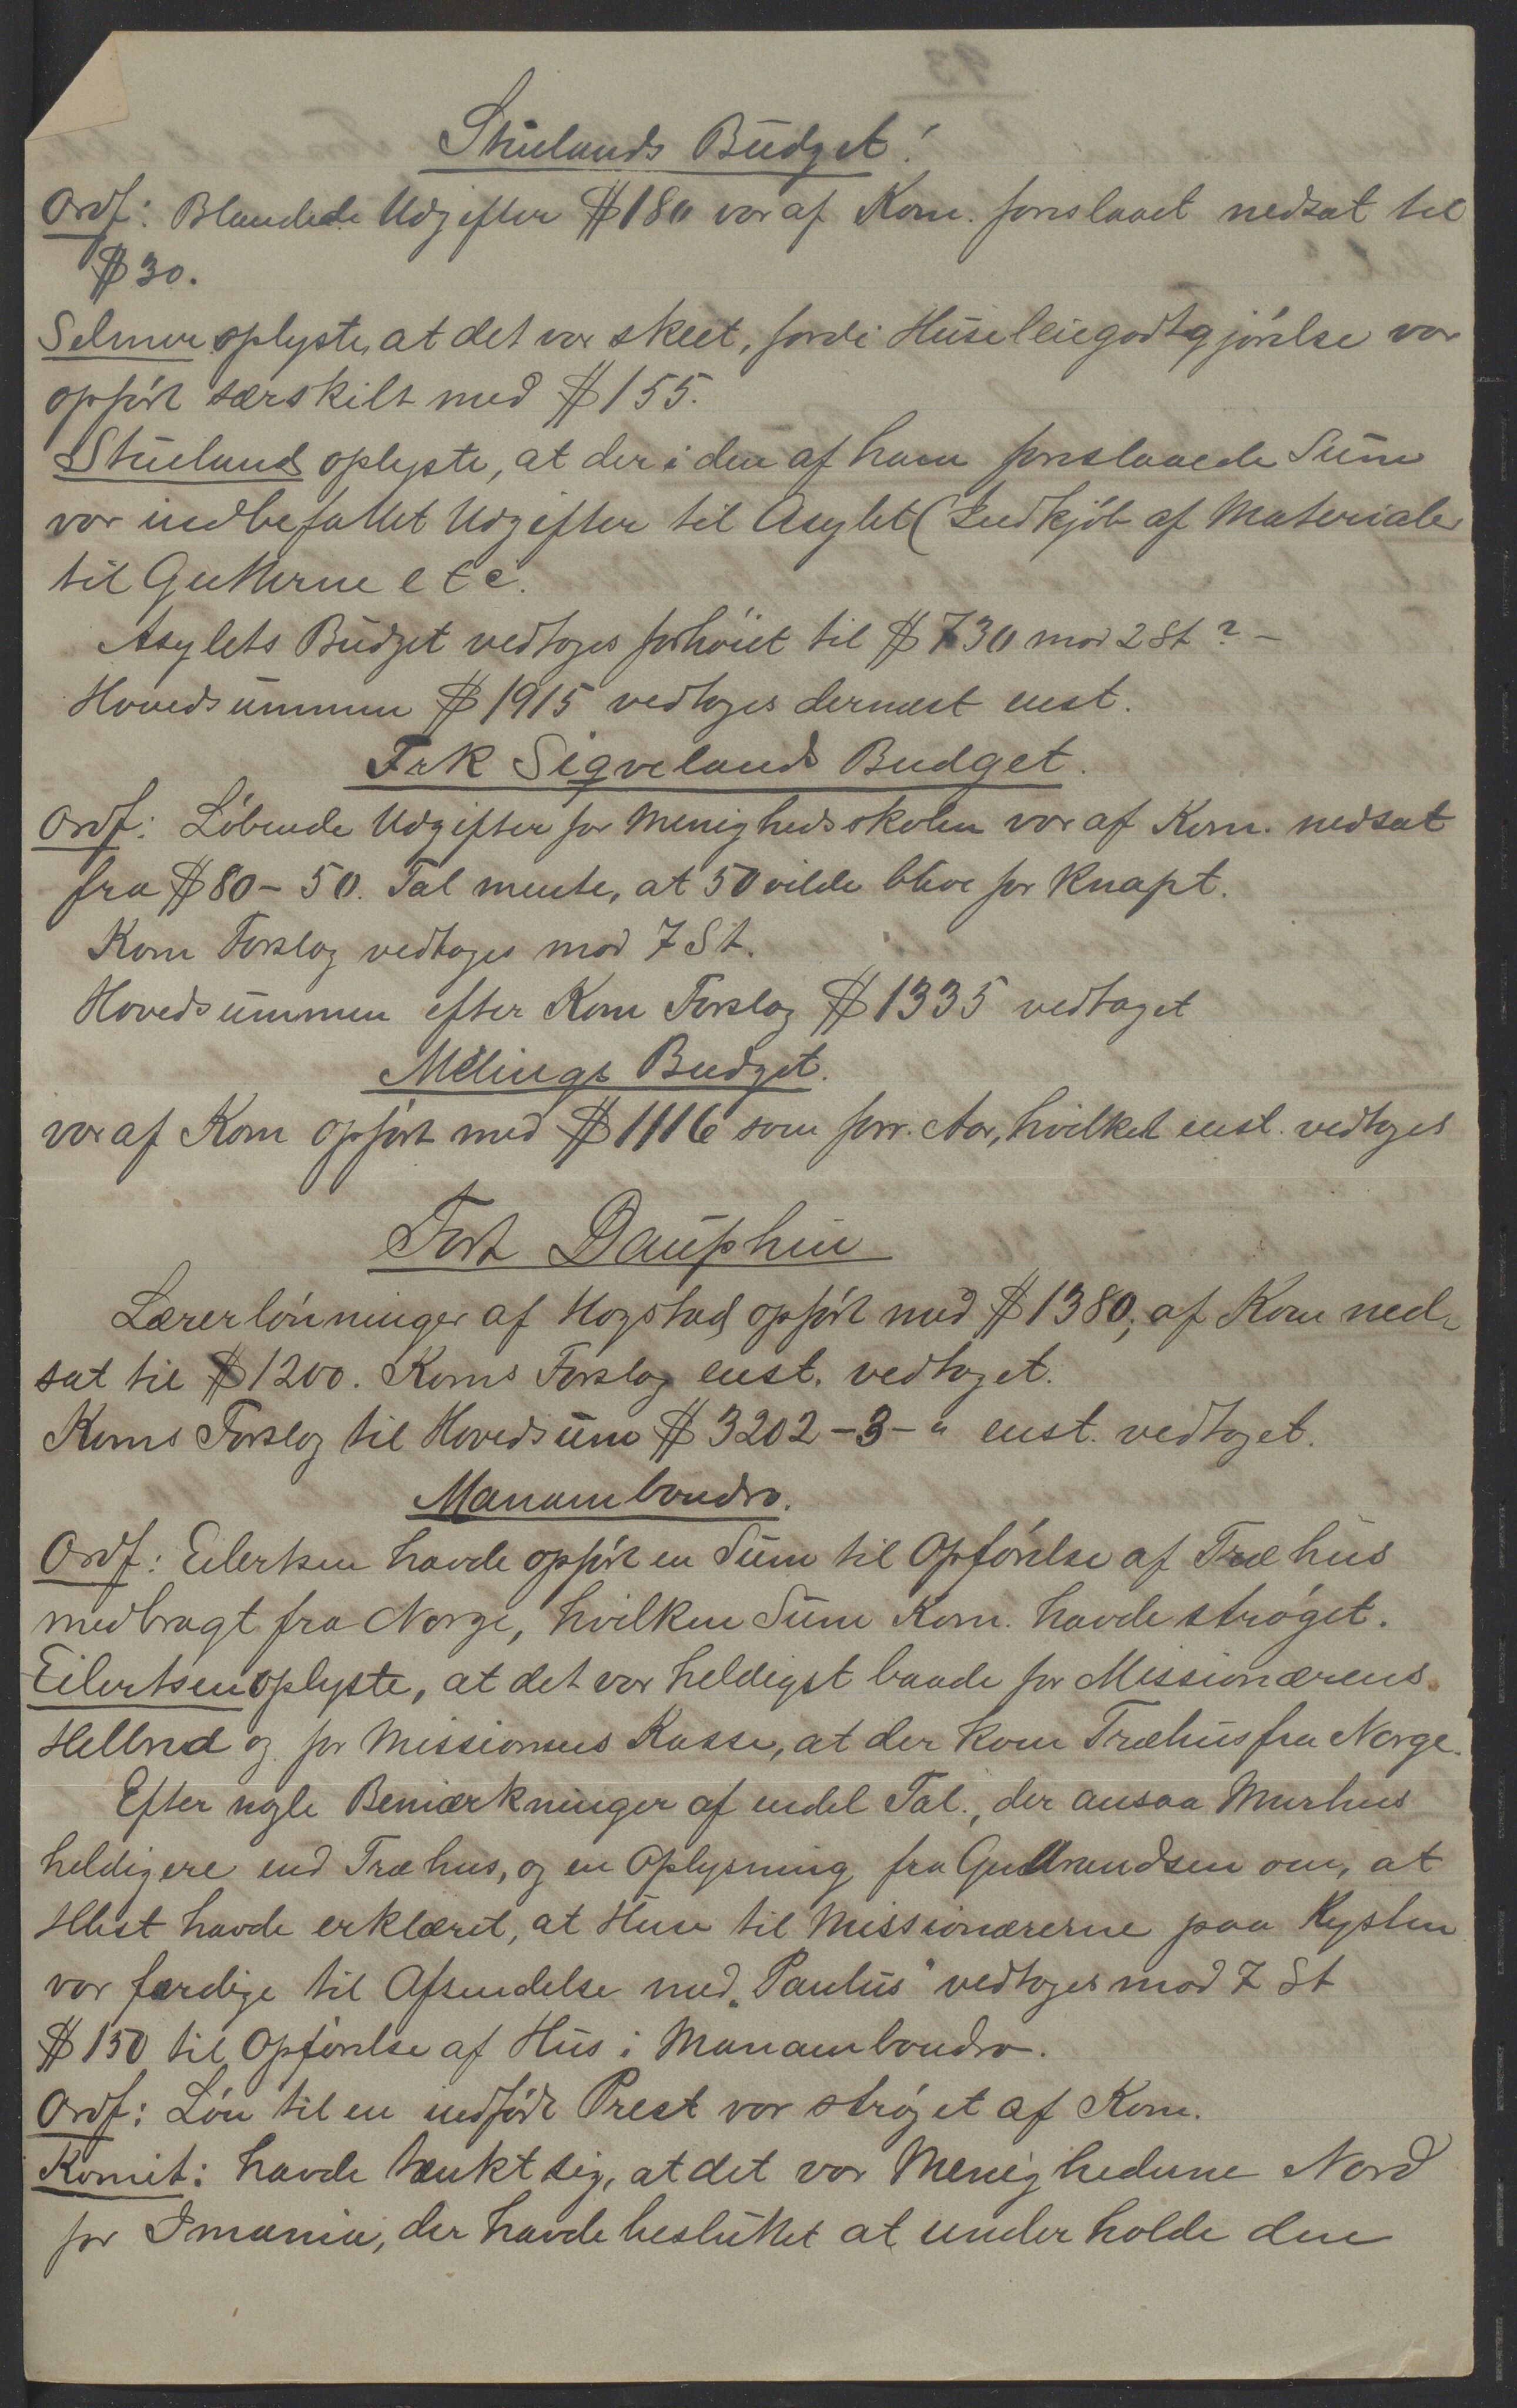 Stuelands Budget!
Ordf: Blandede Udgifter $180 var af Kom. foreslaaet nedsat til
$30.
Selmer oplyste, at det var skeet, fordi Huseleiegodtgjörelse var
opfört særskilt med $155.
Stueland oplyste, at der i den af ham foreslaaede Sum
var indbefattet Udgifter til Asylet (Indkjöb af Materialer
til Gutterne etc.
Asylets Budget vedtoges forhöiet til $730 mod 2 St? –
Hovedsummen $1915 vedtoges dernæst enst.
Frk Sigvelands Budget.
Ordf: Löbende Udgifter for Menighedsskolen var af Kom. nedsat
fra $80 – 50. Tal mente, at 50 vilde blive for knapt.
Kom Forslag vedtoges mod 7 St.
Hovedsummen efter Kom Forslag $1335 vedtaget
Mélings Budget.
var af Kom opfört med $1116 som forr. Aar, hvilket enst. vedtoges
Fort Dauphin
Lærerlönninger af Hogstad opfört med $1380; af Kom ned-
sat til $1200. Koms Forslag enst. vedtaget.
Koms Forslag til Hovedsum $3202 – 3 – " enst. vedtaget.
Manambondro.
Ordf: Eilertsen havde opfört en Sum til Opförelse af Træhus
medbragt fra Norge, hvilken Sum Kom. havde ströget.
Eilertsen oplyste, at det var heldigst baade for Missionærens
Helbred og for Missionens Kasse, at der kom Træhus fra Norge.
Efter nogle Bemærkninger af endel Tal., der ansaa Murhus
heldigere end Træhus, og en Oplysning fra Gulbrandsen om, at
Hlbst havde erklæret, at Huse til Missionærerne paa Kysten
var færdige til Afsendelse med „Paulus" vedtoges mod 7 St
$150 til Opförelse af Hus i Manambondro.
Ordf: Lön til en indfödt Prest var ströget af Kom.
Komit: havde tænkt sig, at det var Menighederne Nord
for Imania, der havde besluttet at underholde den